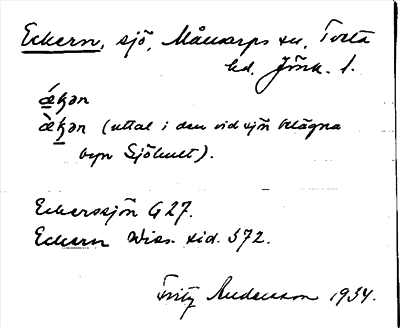 Eckern, sjö, Månsarps sn, Tveta
hd, Jönk. l.
ǽkən
æ̀kən (uttal i den vid sjön belägna
byn Sjöhult).
Eckerssjön G 27.
Eckern Wies. sid. 372.
Fritz Andersson 1934.